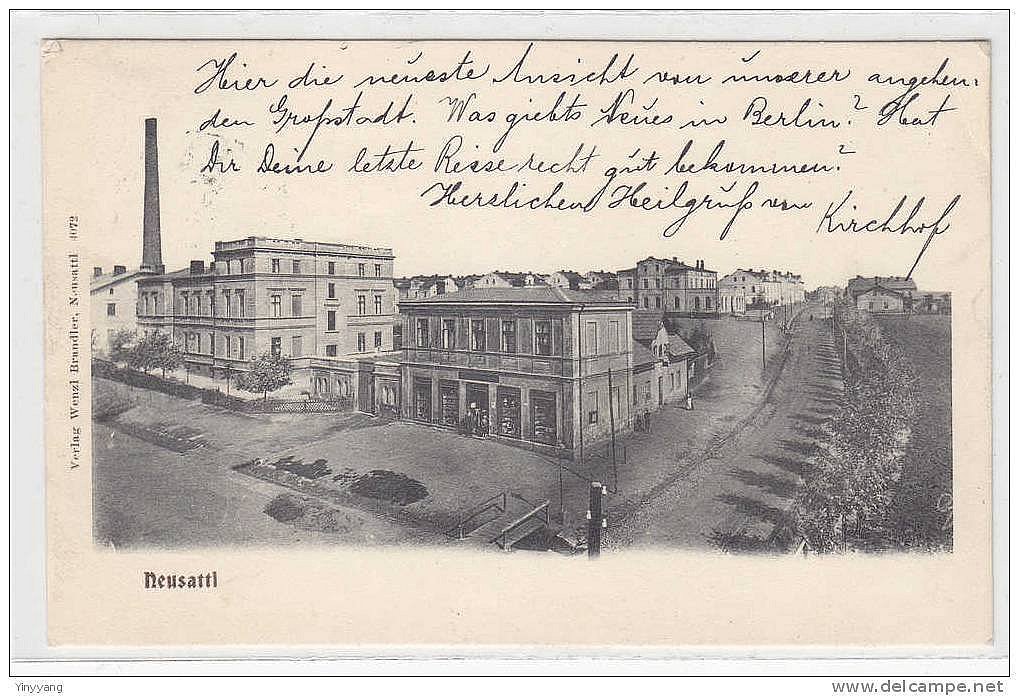 Hier die neueste Ansicht von unserer angehen-
den Großstadt. Was giebts Neues in Berlin? Hat
Dir Deine letzte Reise recht gut bekommen?
Herzlichen Heilgruß von Kirchhof
Verlag Wenzl Brandler, Neusattl 4072
Neusattl
Yinyyang
www.delcampe.net